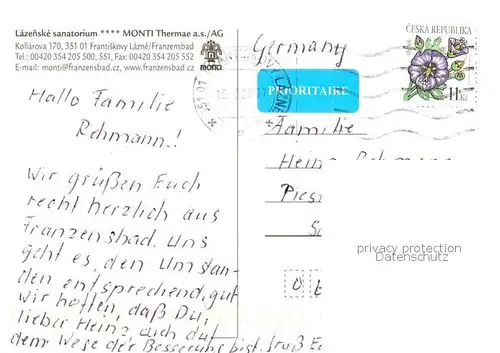 Lázeňské sanatorium **** MONTI Thermae a.s./AG
Kollárova 170, 351 01 Františkovy Lázně/Franzensbad
Tel.: 00420 354 205 500, 551, Fax: 00420 354 205 552
E-mail: monti@franzensbad.cz, www.franzensbad.cz
MONTI
Hallo Familie
Rehmann!
Wir grüßen Euch
recht herzlich aus
Franzensbad. Uns
geht es, den Umstän-
den entsprechend, gut
Wir hoffen, daß Du,
lieber Heinz auch auf
dem Wege der Besserung bist. Gruß
Germany
PRIORITAIRE
ČESKÁ REPUBLIKA
11Kč
Familie
privacy protection
Datenschutz